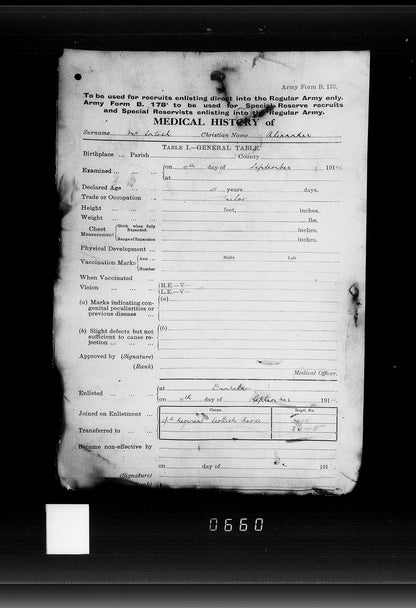 Army Form B. 178.
To be used for recruits enlisting direct into the Regular Army only.
Army Form B. 178A to be used for Special Reserve recruits
and Special Reservists enlisting into the Regular Army.
MEDICAL HISTORY of
Surname Mc Intosh Christian Name Alexander
TABLE I.—GENERAL TABLE.
Birthplace ... Parish County
Examined ... (on day of September 191
(at
Declared Age years days.
Trade or Occupation Tailor
Height feet, inches.
Weight lbs.
Chest Measurement (Girth when fully Expanded. inches.
(Range of Expansion inches.
Physical Development
Right Left
Vaccination Marks (Arm
(Number
When Vaccinated
Vision (R.E.—V—
(L.E.—V—
(a) Marks indicating con- (a)
genital peculiarities or
previous disease
(b) Slight defects but not (b)
sufficient to cause re-
jection
Approved by (Signature)
(Rank)
Medical Officer.
Enlisted (at
(on day of September 191
Corps Regtl. No.
Joined on Enlistment Regiment Scottish Horse
Transferred to
Became non-effective by
on day of 191
(Signature)
(Rank)
0660